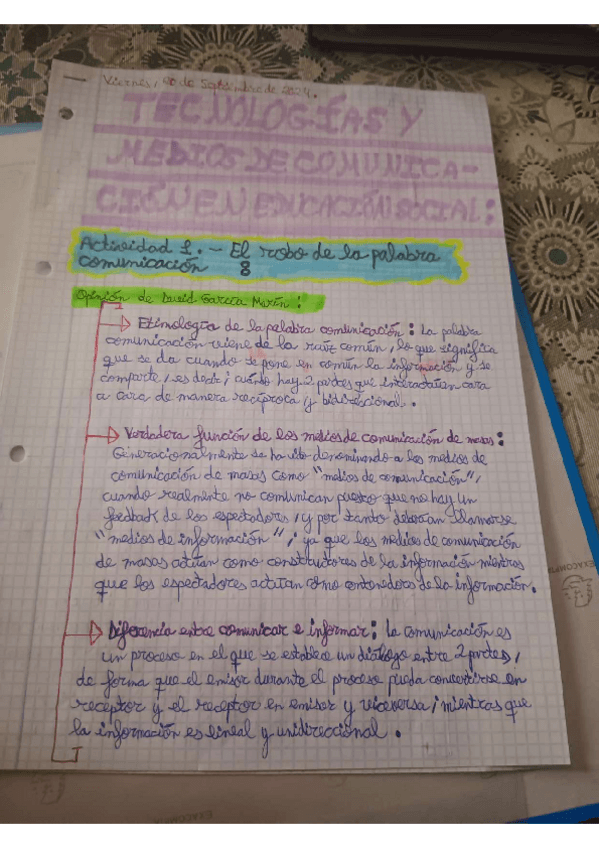 Viernes, 20 de Septiembre de 2024.
TECNOLOGÍAS Y
MEDIOS DE COMUNICA-
CIÓN EN EDUCACIÓN SOCIAL:
Actividad 1. - El robo de la palabra
comunicación :
Opinión de David García Marín :
Etimología de la palabra comunicación : La palabra
comunicación viene de la raíz común, lo que significa
que se da cuando se pone en común la información y se
comparte, es decir, cuando hay 2 partes que interactúan cara
a cara de manera recíproca y bidireccional.
Verdadera función de los medios de comunicación de masas :
Generacionalmente se ha ido denominando a los medios de
comunicación de masas como "medios de comunicación",
cuando realmente no comunican puesto que no hay un
feedback de los espectadores, y por tanto deberían llamarse
"medios de información", ya que los medios de comunicación
de masas actúan como constructores de la información mientras
que los espectadores actúan como contenedores de la información.
Diferencia entre comunicar e informar : La comunicación es
un proceso en el que se establece un diálogo entre 2 partes,
de forma que el emisor durante el proceso pueda convertirse en
receptor y el receptor en emisor y viceversa, mientras que
la información es lineal y unidireccional.